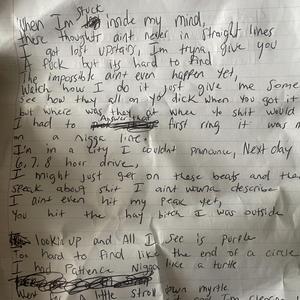 When I'm stuck inside my mind,
these thoughts aint never in straight lines
I got lost upstairs, I'm tryna, give you
a fuck but its hard to find
the impossible aint even happen yet,
Watch how I do it, just give me some
see how they all on yo dick when you got it
but where was they at when yo shit would
I had to Answer the first ring it was
on a nigga line
I'm in a city I couldnt pronounce, Next day
6, 7, 8 hour drive,
I might just get on these beats and then
speak about shit I aint wanna describe
I aint even hit my peak yet,
You hit the hay bitch I was outside
lookin up and All I see is purple
Too hard to find like the end of a circle
I had Patience Nigga like a turtle
Went for A little stroll down myrtle